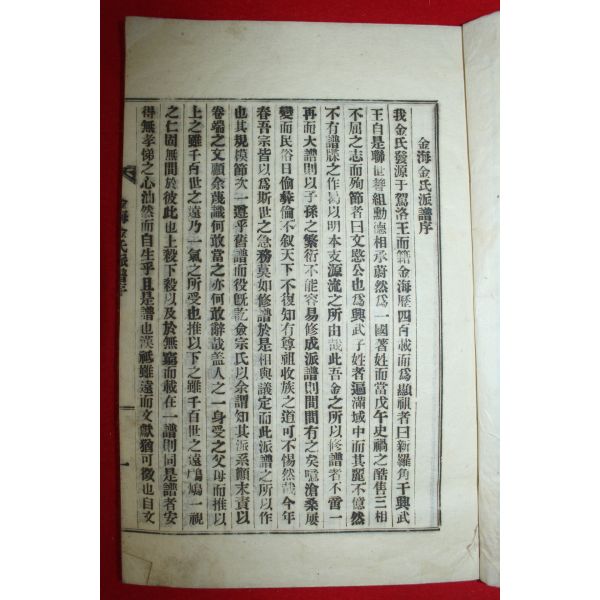 金海金氏派譜序
我金氏發源于駕洛王而籍金海歷四百載而爲顯祖者曰新羅角干興武
王自是聯世著組勳德相承蔚然爲一國著姓而當戊午史禍之酷售三相
不屈之志而殉節者曰文愍公也爲興武子姓者遍滿域中而其麗不億然
不有譜牒之作曷以明本支源流之所由哉此吾金之所以修譜者不啻一
再而大譜則以子孫之繁衍不能容易修成派譜則間間有之矣噫滄桑屢
變而民俗日偷彛倫不叙天下不復知有尊祖收族之道可不惕然哉今年
春吾宗皆以爲斯世之急務莫如修譜於是相與議定而此派譜之所以作
也其規模節次一遵乎舊譜而役旣訖僉宗氏以余謂知其派系顚末責以
卷端之文顧余蔑識何敢當之亦何敢辭哉盖人之一身受之父母而推以
上之雖千百世之遠乃一氣之所受也推以下之雖千百世之遠鳲鳩一視
之仁固無間於彼此也上殺下殺以及於無窮而載在一譜則同是譜者安
得無孝悌之心油然而自生乎且是譜也漢祗雖遠而文獻猶可徵也自文
金海金氏派譜序
一